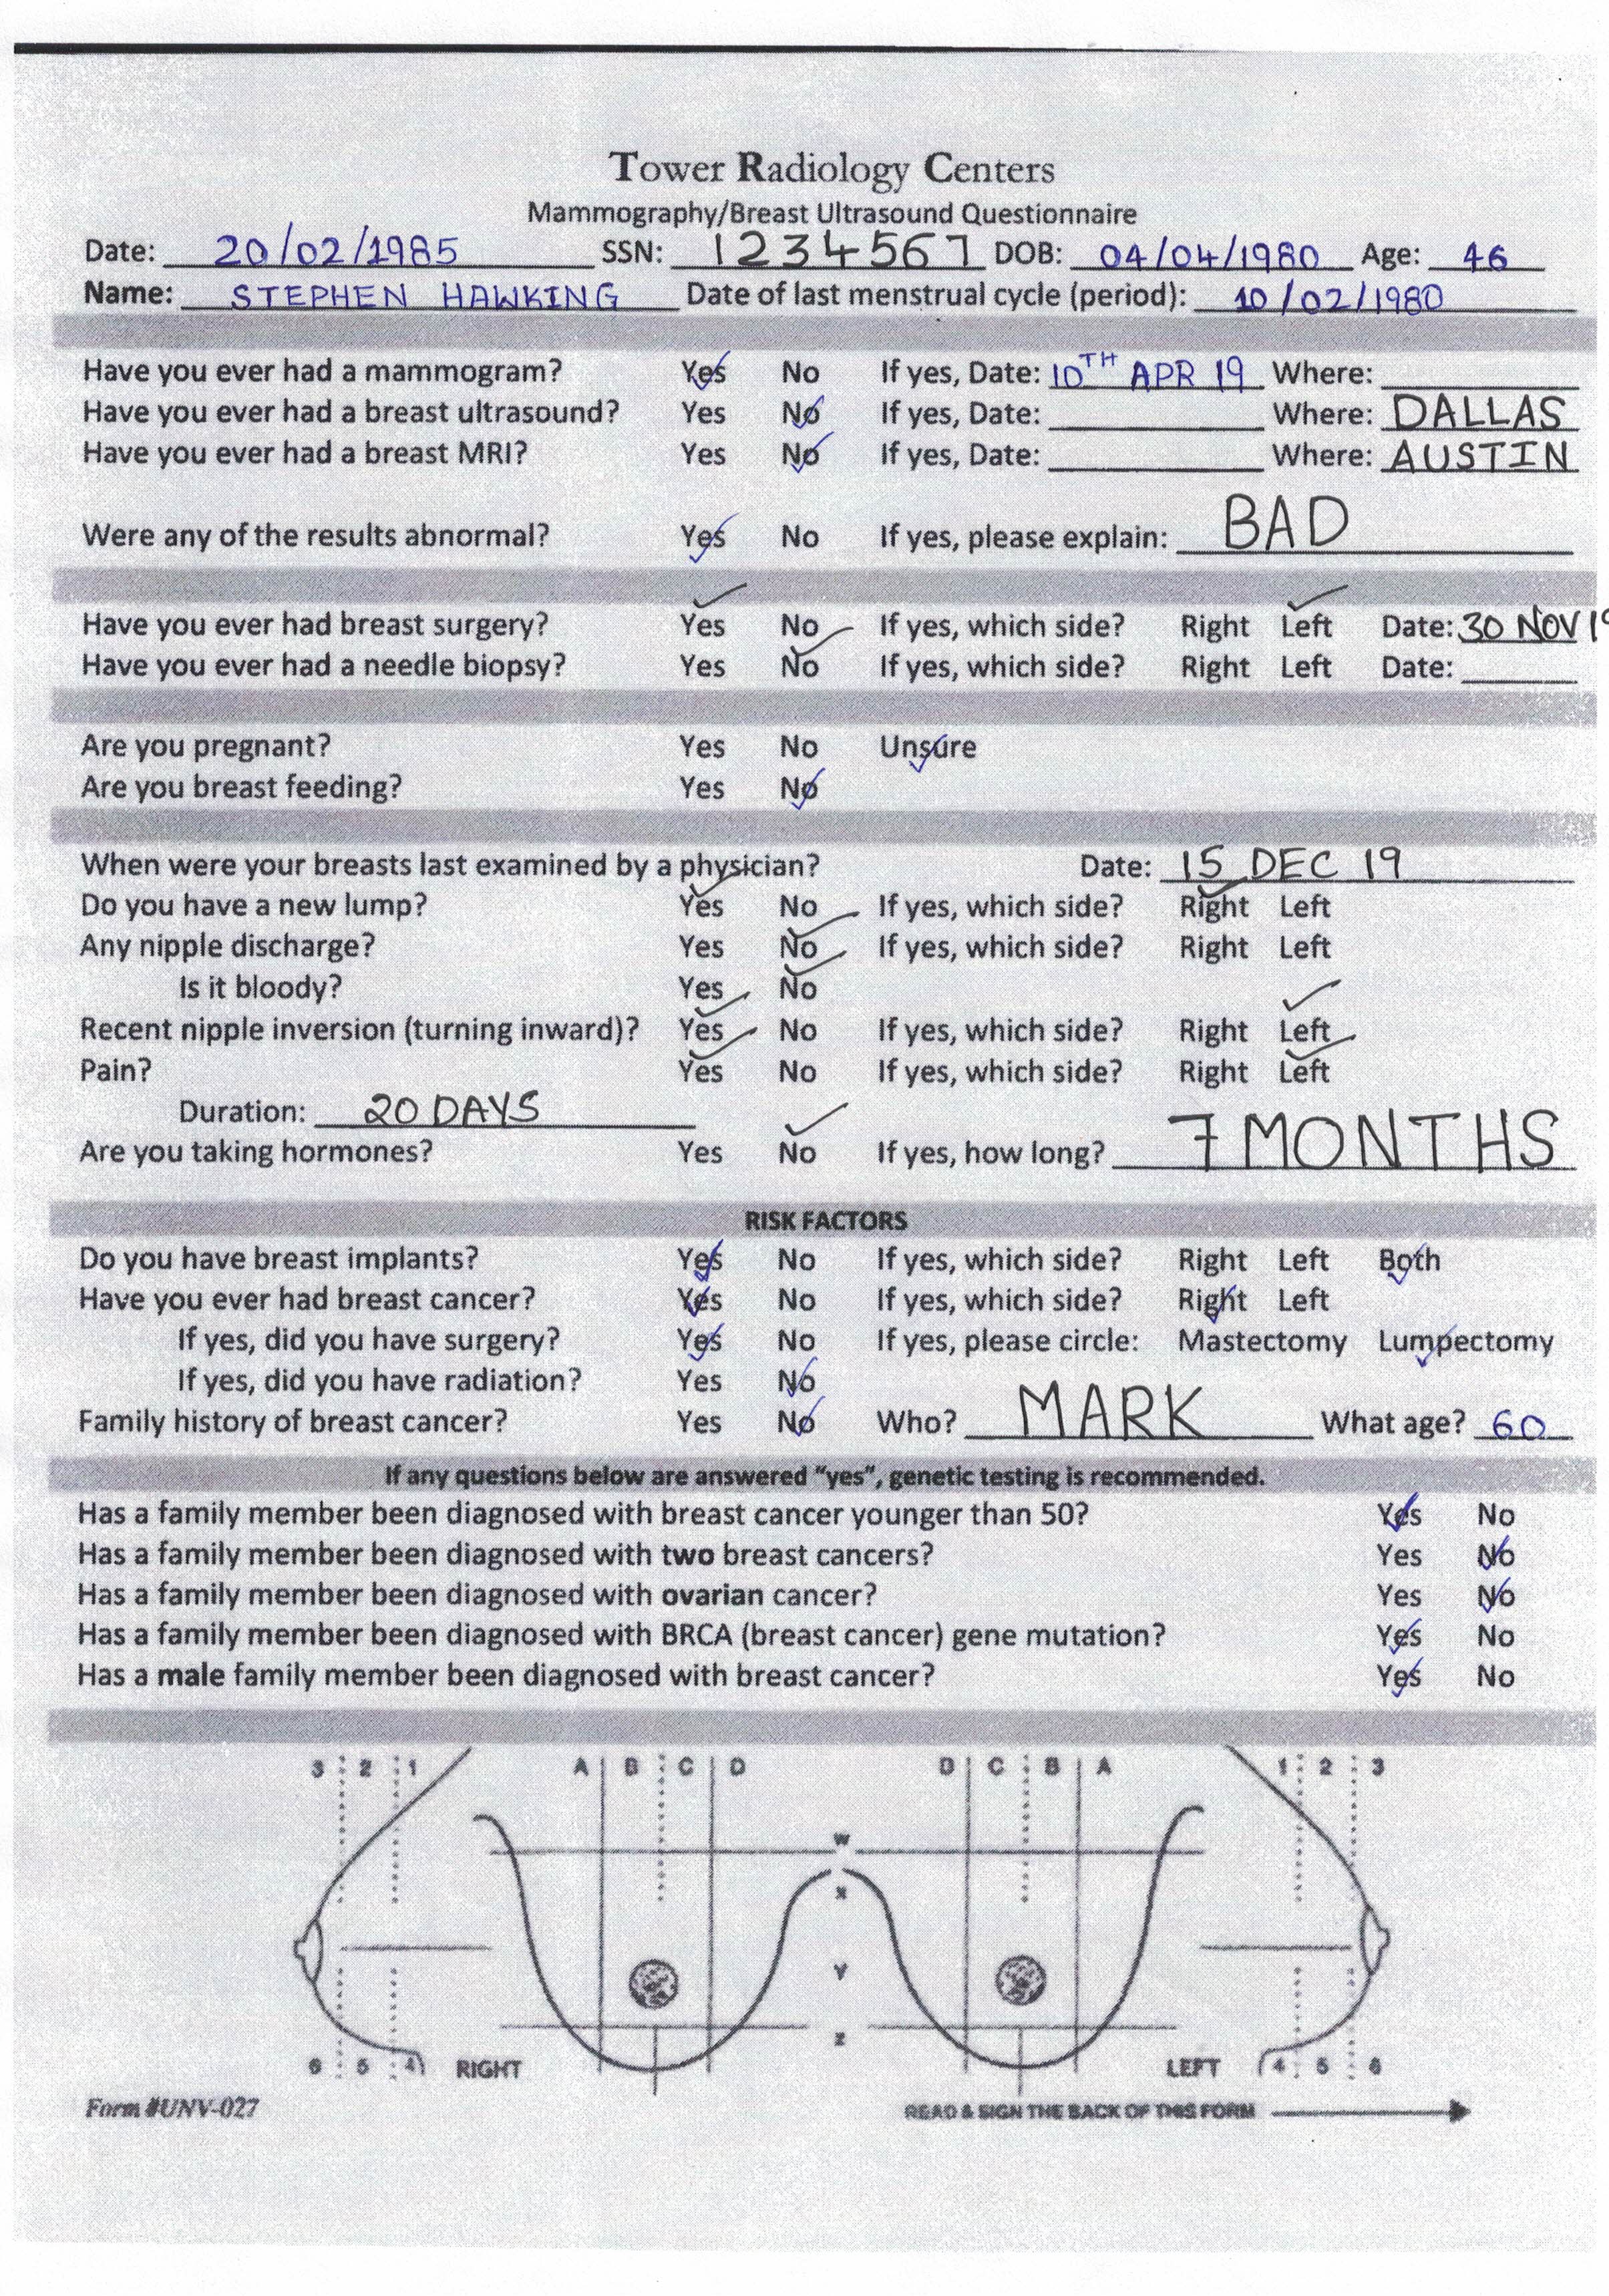 Tower Radiology Centers
Mammography/Breast Ultrasound Questionnaire
Date: 20/02/1985 SSN: 1234567 DOB: 04/04/1980 Age: 46
Name: STEPHEN HAWKING Date of last menstrual cycle (period): 10/02/1980
Have you ever had a mammogram? Yes No If yes, Date: 10TH APR 19 Where:
Have you ever had a breast ultrasound? Yes No If yes, Date: Where: DALLAS
Have you ever had a breast MRI? Yes No If yes, Date: Where: AUSTIN
Were any of the results abnormal? Yes No If yes, please explain: BAD
Have you ever had breast surgery? Yes No If yes, which side? Right Left Date: 30 NOV 19
Have you ever had a needle biopsy? Yes No If yes, which side? Right Left Date:
Are you pregnant? Yes No Unsure
Are you breast feeding? Yes No
When were your breasts last examined by a physician? Date: 15 DEC 19
Do you have a new lump? Yes No If yes, which side? Right Left
Any nipple discharge? Yes No If yes, which side? Right Left
Is it bloody? Yes No
Recent nipple inversion (turning inward)? Yes No If yes, which side? Right Left
Pain? Yes No If yes, which side? Right Left
Duration: 20 DAYS
Are you taking hormones? Yes No If yes, how long? 7 MONTHS
RISK FACTORS
Do you have breast implants? Yes No If yes, which side? Right Left Both
Have you ever had breast cancer? Yes No If yes, which side? Right Left
If yes, did you have surgery? Yes No If yes, please circle: Mastectomy Lumpectomy
If yes, did you have radiation? Yes No
Family history of breast cancer? Yes No Who? MARK What age? 60
If any questions below are answered "yes", genetic testing is recommended.
Has a family member been diagnosed with breast cancer younger than 50? Yes No
Has a family member been diagnosed with two breast cancers? Yes No
Has a family member been diagnosed with ovarian cancer? Yes No
Has a family member been diagnosed with BRCA (breast cancer) gene mutation? Yes No
Has a male family member been diagnosed with breast cancer? Yes No
3 2 1 A B C D D C B A 1 2 3
W
X
Y
Z
6 5 4 RIGHT LEFT 4 5 6
Form #UNV-027 READ & SIGN THE BACK OF THIS FORM